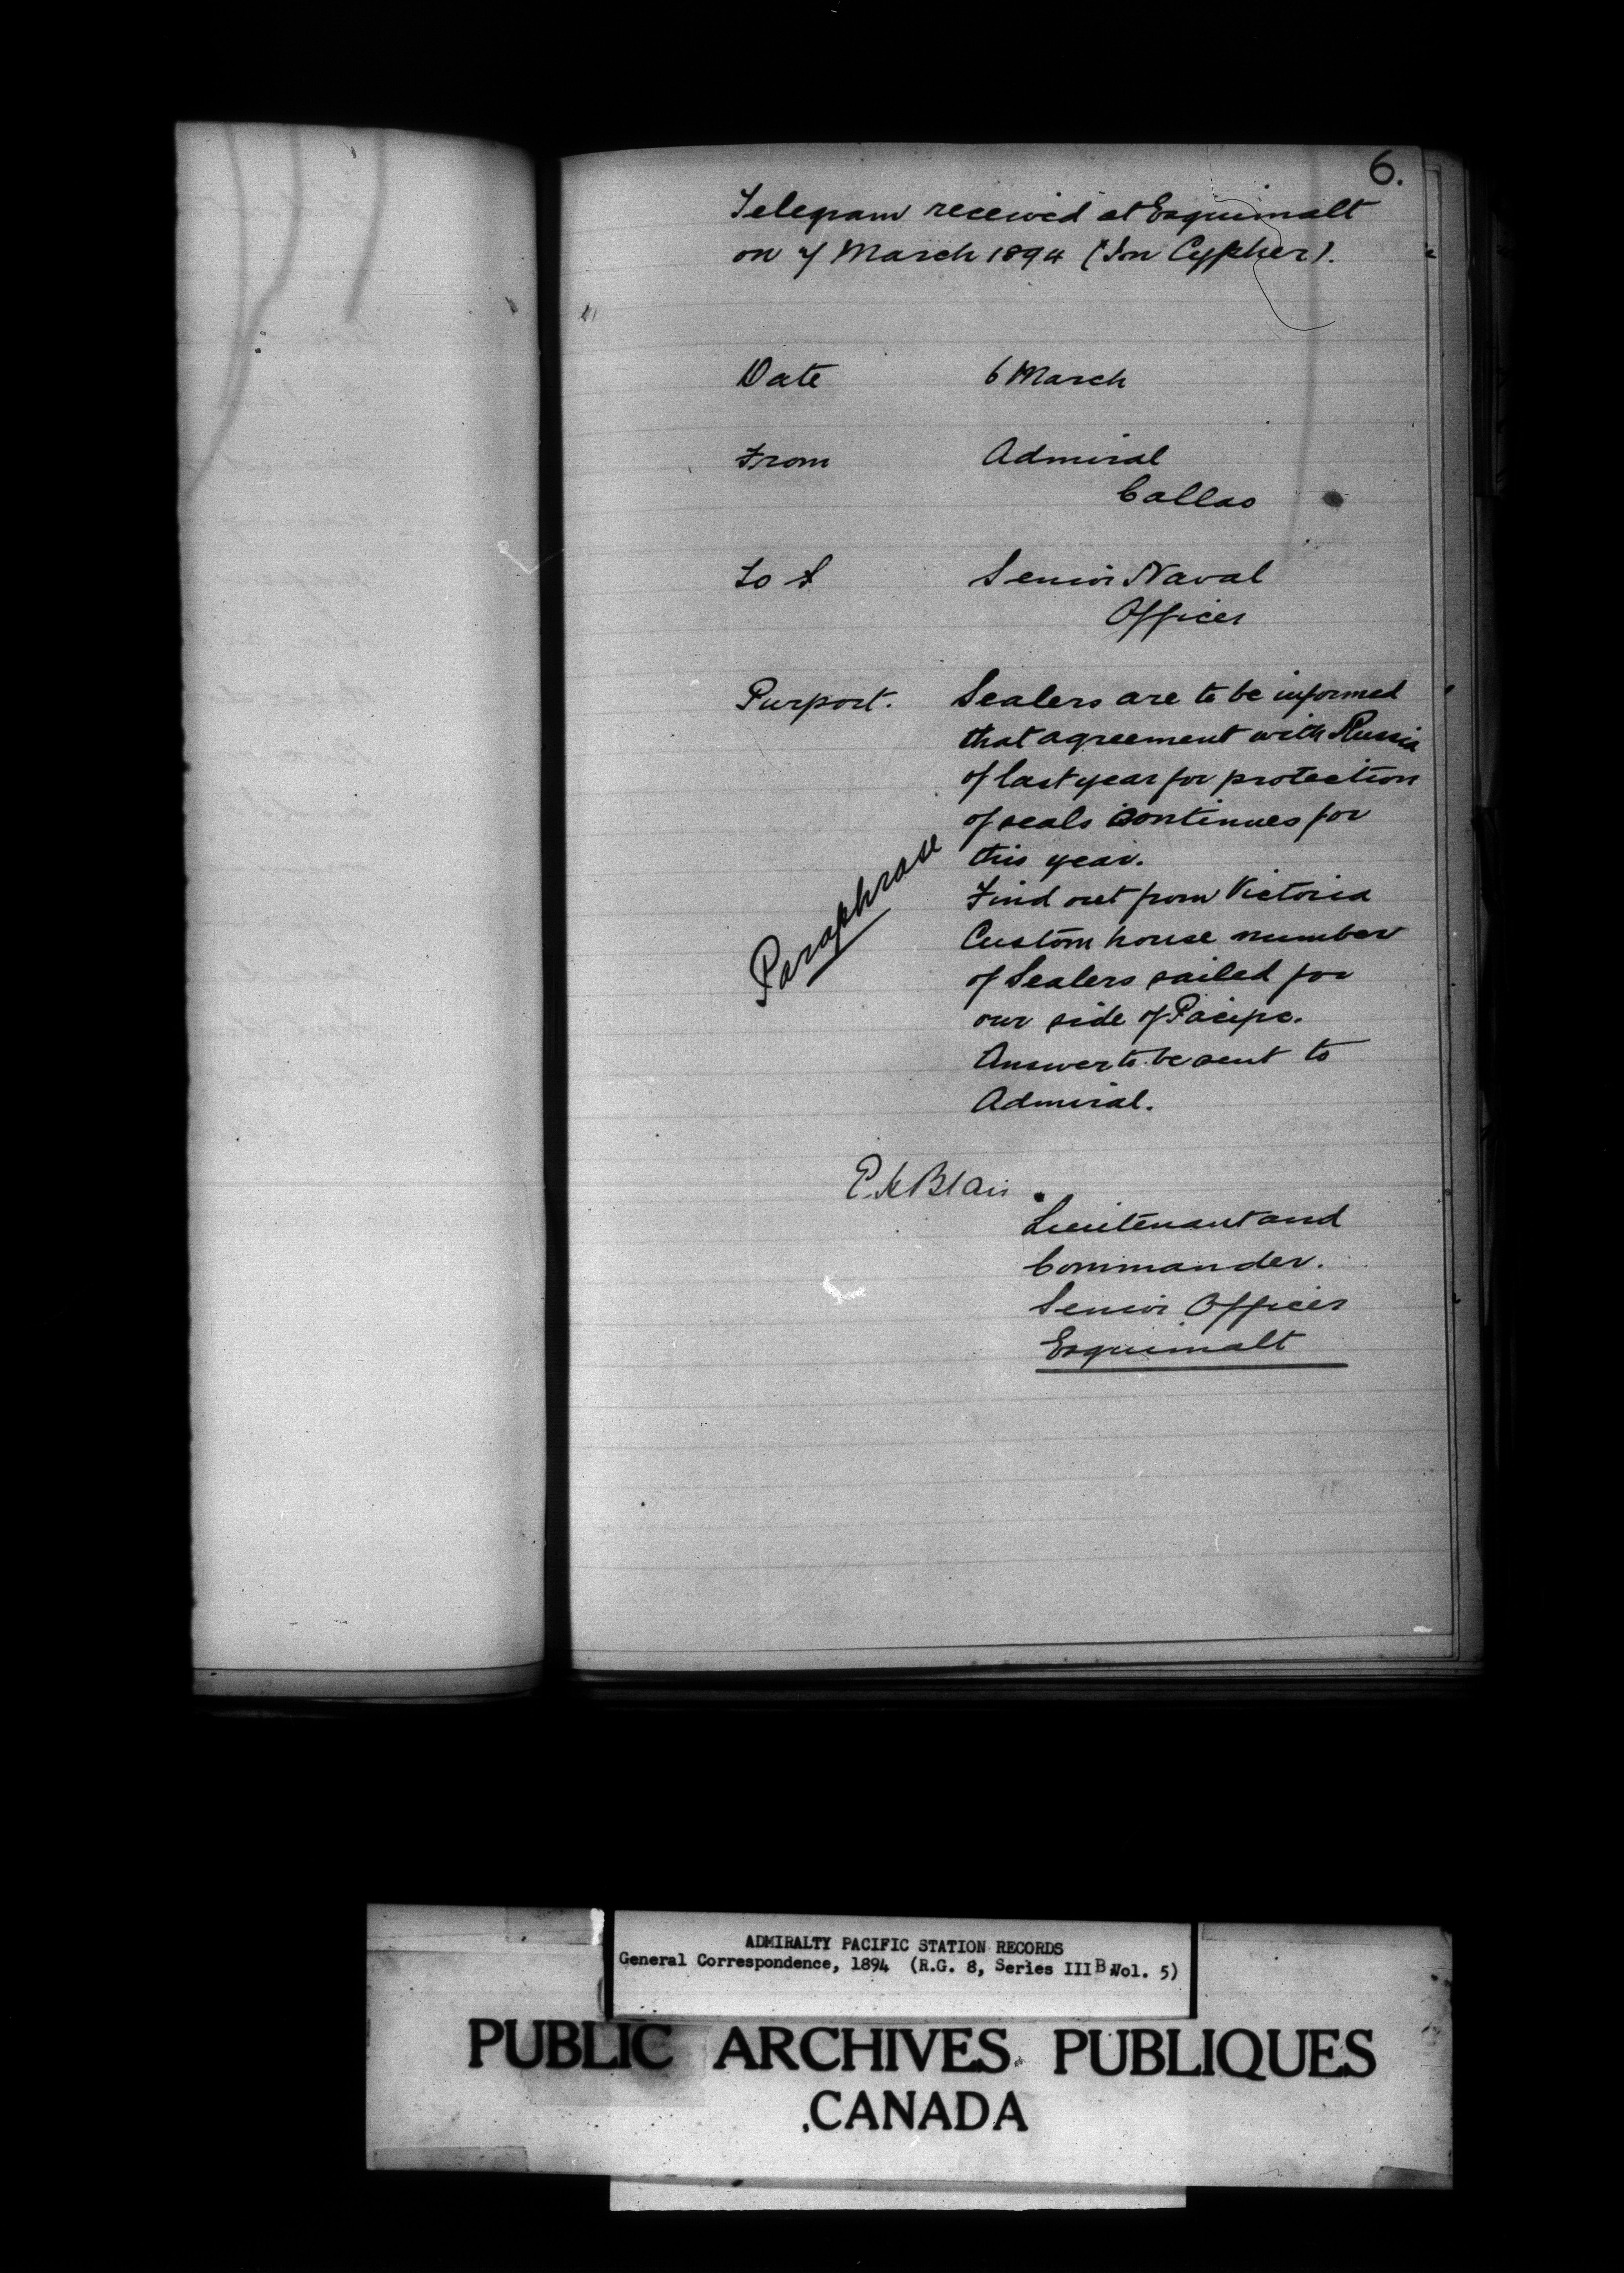 6.
Telegram received at Esquimalt
on 7 March 1894 (In Cypher).
Date 6 March
From Admiral
Callao
To Senior Naval
Officer
Purport. Sealers are to be informed
that agreement with Russia
of last year for protection
of seals continues for
this year.
Paraphrase
Find out from Victoria
Custom house number
of Sealers sailed for
our side of Pacific.
Answer to be sent to
Admiral.
Blair
Lieutenant and
Commander.
Senior Officer
Esquimalt
ADMIRALTY PACIFIC STATION RECORDS
General Correspondence, 1894 (R.G. 8, Series III B, Vol. 5)
PUBLIC ARCHIVES PUBLIQUES
CANADA